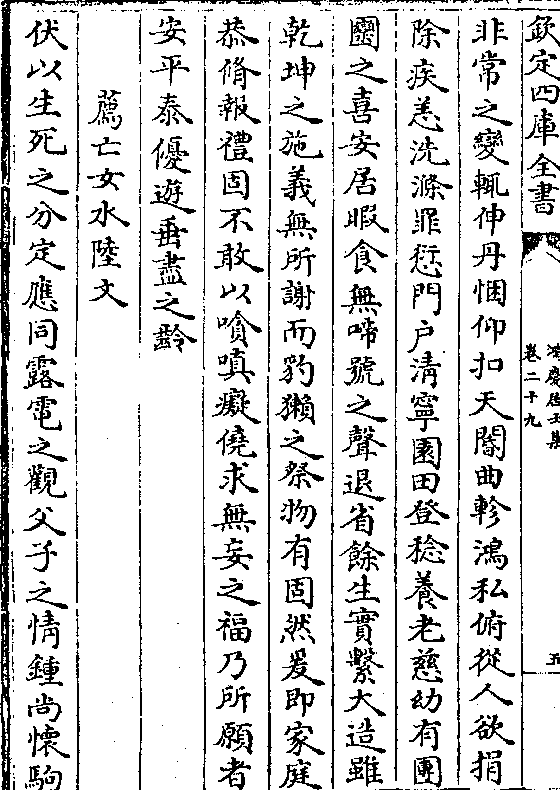 欽定四庫全書
卷二十九
五
非常之變輒伸丹悃仰扣天閽曲軫鴻私俯從人欲捐
除疾恙洗滌罪愆門户清寧園田登稔養老慈幼有團
圞之喜安居暇食無啼號之聲退省餘生實繫大造雖
乾坤之施義無所謝而豹獺之祭物有固然爰即家庭
恭脩報禮固不敢以嗔癡僥求無妄之福乃所願者
安平泰優遊垂盡之齡
薦亡女水陸文
伏以生死之分定應同露電之觀父子之情鍾尚懷駒